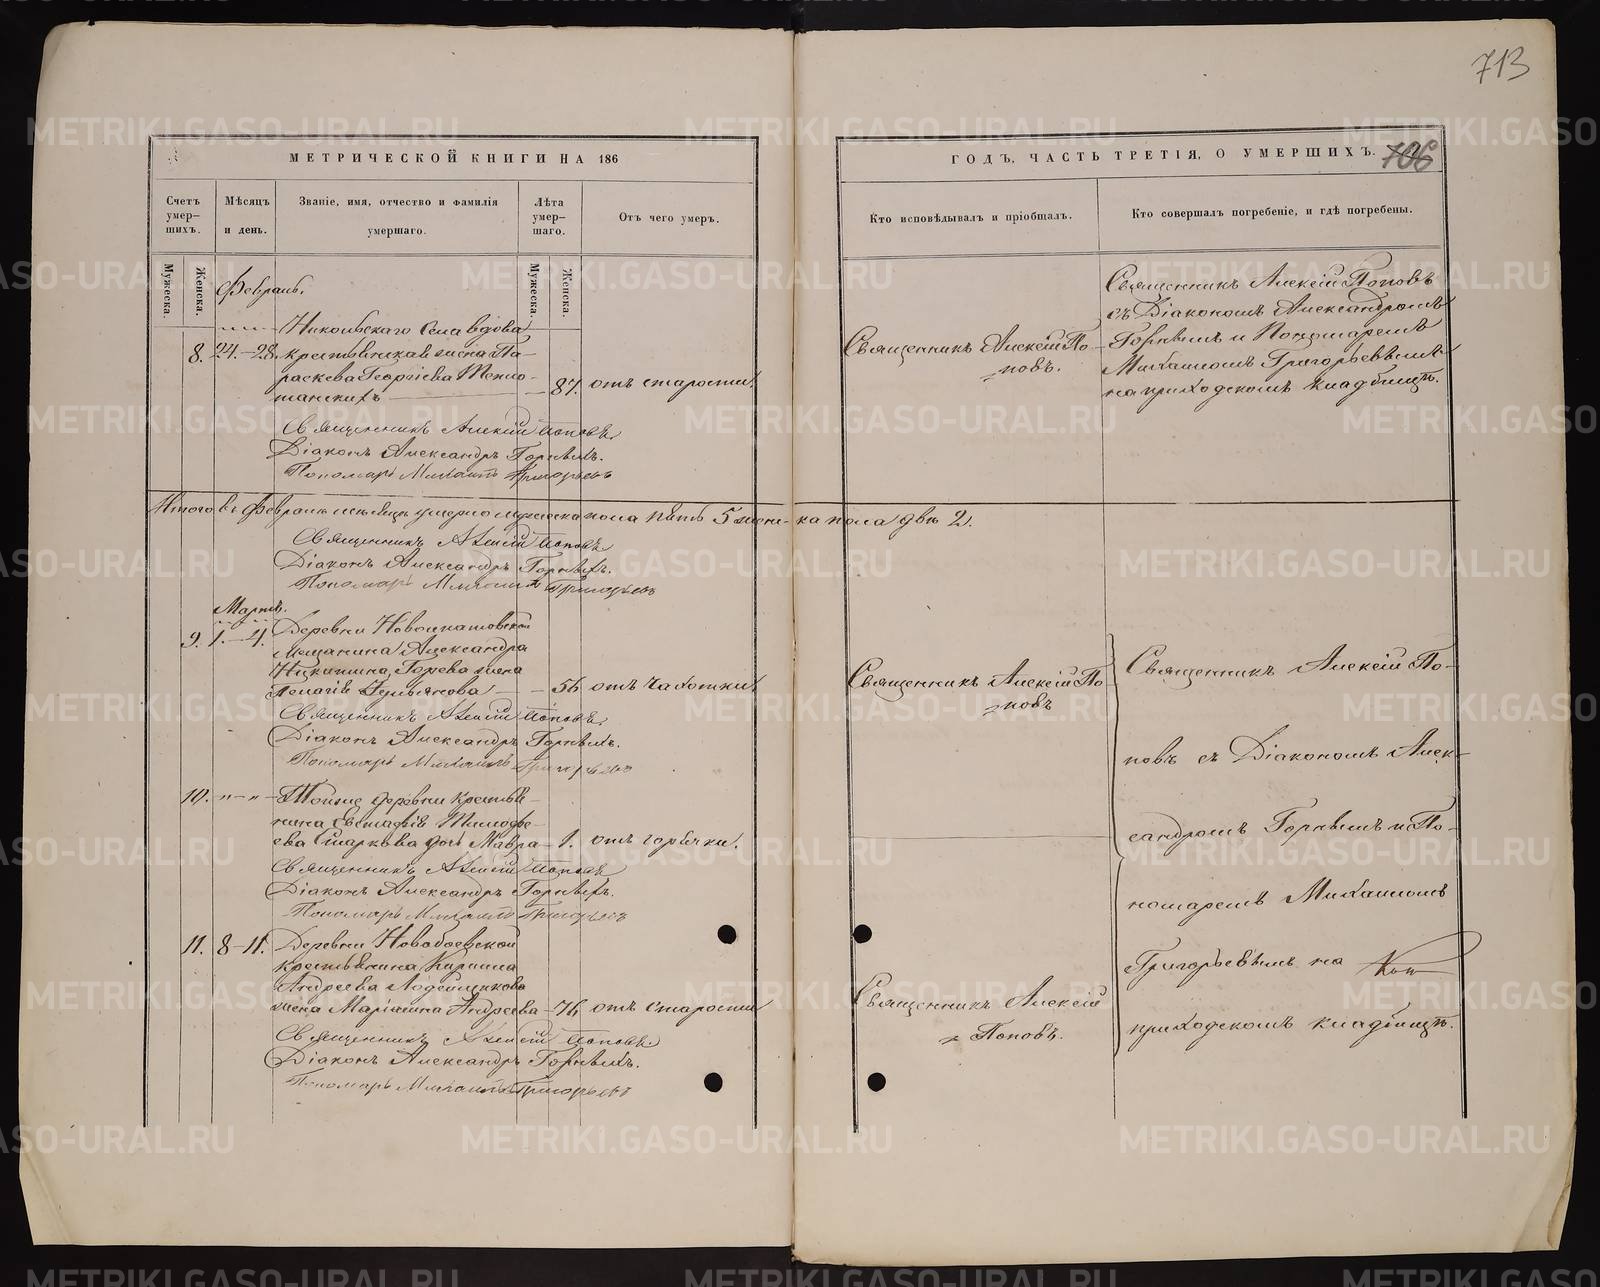 713
МЕТРИЧЕСКОЙ КНИГИ НА 186
ГОДЪ, ЧАСТЬ ТРЕТІЯ, О УМЕРШИХЪ.
706
Счетъ умер–шихъ.
Мѣсяцъ и день.
Званіе, имя, отчество и фамилія умершаго.
Лѣта умер–шаго.
Отъ чего умеръ.
Кто исповѣдывалъ и пріобщалъ.
Кто совершалъ погребеніе, и гдѣ погребены.
Мужеска.
Женска.
Мужеска.
Женска.
Февраль.
Никольскаго Села вдова
8. 24.–28. крестьянская жена Па–
раскева Георгіева
87. отъ старости.
Священникъ Алексій По–
повъ.
Священникъ Алексій Поповъ
съ Діакономъ Александромъ
Горныхъ и Пономаремъ
Михаиломъ Григорьевымъ
на приходскомъ кладбищѣ.
Священникъ Алексій Поповъ.
Діаконъ Александръ Горныхъ.
Пономарь Михаилъ Григорьевъ
Итого въ Февралѣ мѣсяцѣ умерло мужеска пола пять 5 женска пола двѣ 2.
Священникъ Алексій Поповъ
Діаконъ Александръ Горныхъ.
Пономарь Михаилъ Григорьевъ
Мартъ.
9. 1.–4. Деревни Новоипатовской
Мещанина Александра
Никитина Горева жена
Пелагія Демьянова
56 отъ чахотки.
Священникъ Алексій По–
повъ
Священникъ Алексій Поповъ.
Діаконъ Александръ Горныхъ.
Пономарь Михаилъ Григорьевъ
10. Тойже деревни крестья–
нина Евстафія Тимофе–
ева Старкова дочь Мавра
1. отъ горячки.
Священникъ Алексій Поповъ
Діаконъ Александръ Горныхъ.
Пономарь Михаилъ Григорьевъ
11. 8–11. Деревни Новобоевской
крестьянина Кирилла
Андреева Лодейщикова
жена Маріамна Андреева
76 отъ старости
Священникъ Алексій
Поповъ.
Священникъ Алексій Поповъ.
Діаконъ Александръ Горныхъ.
Пономарь Михаилъ Григорьевъ
Священникъ Алексій По–
повъ съ Діакономъ Алек–
сандромъ Горныхъ и По–
номаремъ Михаиломъ
Григорьевымъ на
приходскомъ кладбищѣ.
METRIKI.GASO-URAL.RU